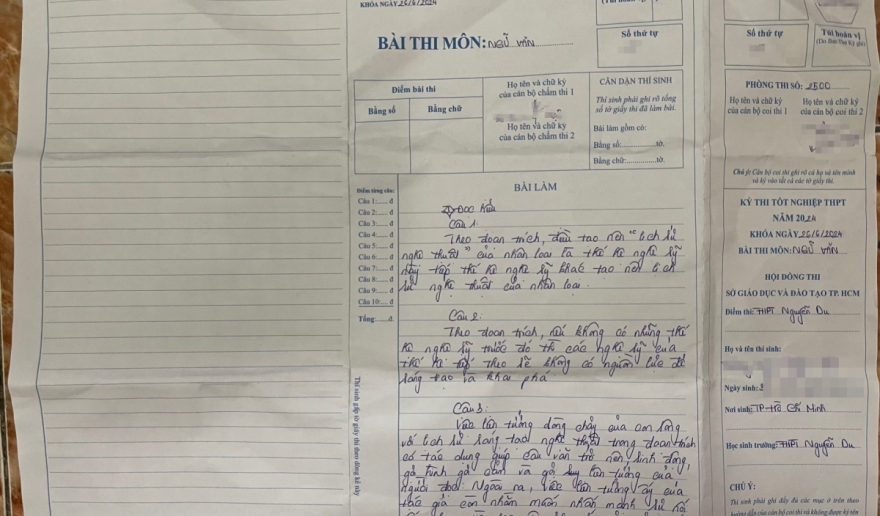 KHÓA NGÀY 26/6/2024
BÀI THI MÔN: NGỮ VĂN
Số thứ tự
Điểm bài thi
Bằng số
Bằng chữ
Họ tên và chữ ký
của cán bộ chấm thi 1
Họ tên và chữ ký
của cán bộ chấm thi 2
CĂN DẶN THÍ SINH
Thí sinh phải ghi rõ tổng
số tờ giấy thi đã làm bài.
Bài làm gồm có:
Bằng số: tờ.
Bằng chữ: tờ.
Điểm từng câu:
Câu 1: đ
Câu 2: đ
Câu 3: đ
Câu 4: đ
Câu 5: đ
Câu 6: đ
Câu 7: đ
Câu 8: đ
Câu 9: đ
Câu 10: đ
Tổng: đ
Thí sinh gấp tờ giấy thi theo dòng kẻ này
BÀI LÀM
Đọc hiểu
Câu 1.
Theo đoạn trích, điều tạo nên "lịch sử
nghệ thuật" của nhân loại là thế hệ nghệ sĩ
này tiếp thế hệ nghệ sĩ khác tạo nên lịch
sử nghệ thuật của nhân loại.
Câu 2.
Theo đoạn trích, nếu không có những thế
hệ nghệ sĩ trước đó thì các nghệ sĩ của
thế hệ tiếp theo sẽ không có nguồn lực để
sáng tạo và khai phá
Câu 3:
Việc liên tưởng dòng chảy của con sông
với lịch sử sáng tạo nghệ thuật trong đoạn trích
có tác dụng giúp câu văn trở nên sinh động,
gợi hình gợi cảm và gợi sự liên tưởng của
người đọc. Ngoài ra, việc liên tưởng ấy của
tác giả còn nhằm muốn nhấn mạnh
Số thứ tự
Túi hoán vị
PHÒNG THI SỐ: 2500
Họ tên và chữ ký
của cán bộ coi thi 1
Họ tên và chữ ký
của cán bộ coi thi 2
Chú ý: Cán bộ coi thi ghi rõ cả họ và tên mình
và ký vào tất cả các tờ giấy thi.
KỲ THI TỐT NGHIỆP THPT
NĂM 2024
KHÓA NGÀY 26/6/2024
BÀI THI MÔN: NGỮ VĂN
HỘI ĐỒNG THI
SỞ GIÁO DỤC VÀ ĐÀO TẠO TP. HCM
Điểm thi: THPT Nguyễn Du
Họ và tên thí sinh:
Ngày sinh:
Nơi sinh: TP Hồ Chí Minh
Học sinh trường: THPT Nguyễn Du
CHÚ Ý:
Thí sinh phải ghi đầy đủ các mục ở trên theo
hướng dẫn của cán bộ coi thi và không được ký tên